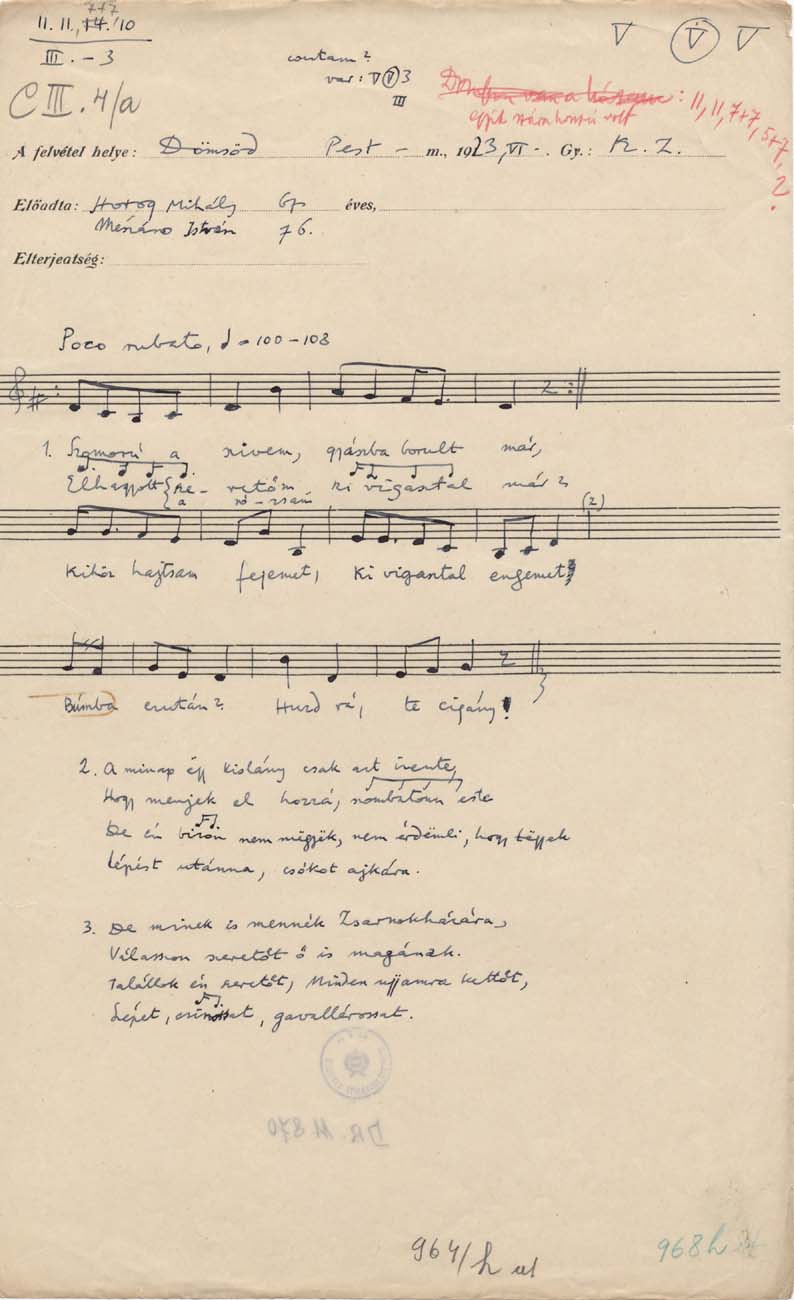 7+7
II. II., 14. 10
III. – 3
C III. 4/a
var: V V 3
III
V V V
: II, II, 7+7, 5+7, 2.
A felvétel helye: Dömsöd Pest – m., 1923, VI –. Gy.: K. Z.
Előadta: Mihály 67 éves,
István 76.
Elterjeatség:
Poco rubato, = 100–108
1. Szomorú a szivem, gyászba borult már,
Elhagyott ki vigasztal már?
a ró-zsám
(2)
Kihöz hajtsam fejemet, ki vigasztal engemet
Búmba ezután? Huzd rá, te cigány!
2. A minap égy kislány csak azt izente,
Hogy menjek el hozzá, szombatonn este
De én bizon nem mëgyëk, nem érdëmli, hogy tëgyek
Lépést utánna, csókot ajkára.
3. De minek is mennék Zsarnokházára,
Válasszon szeretőt ő is magának.
Találok én szeretőt, Minden ujjamra kettőt,
Szépet, csinossat, gavallérossat.
DR. 11870
964/h
968h